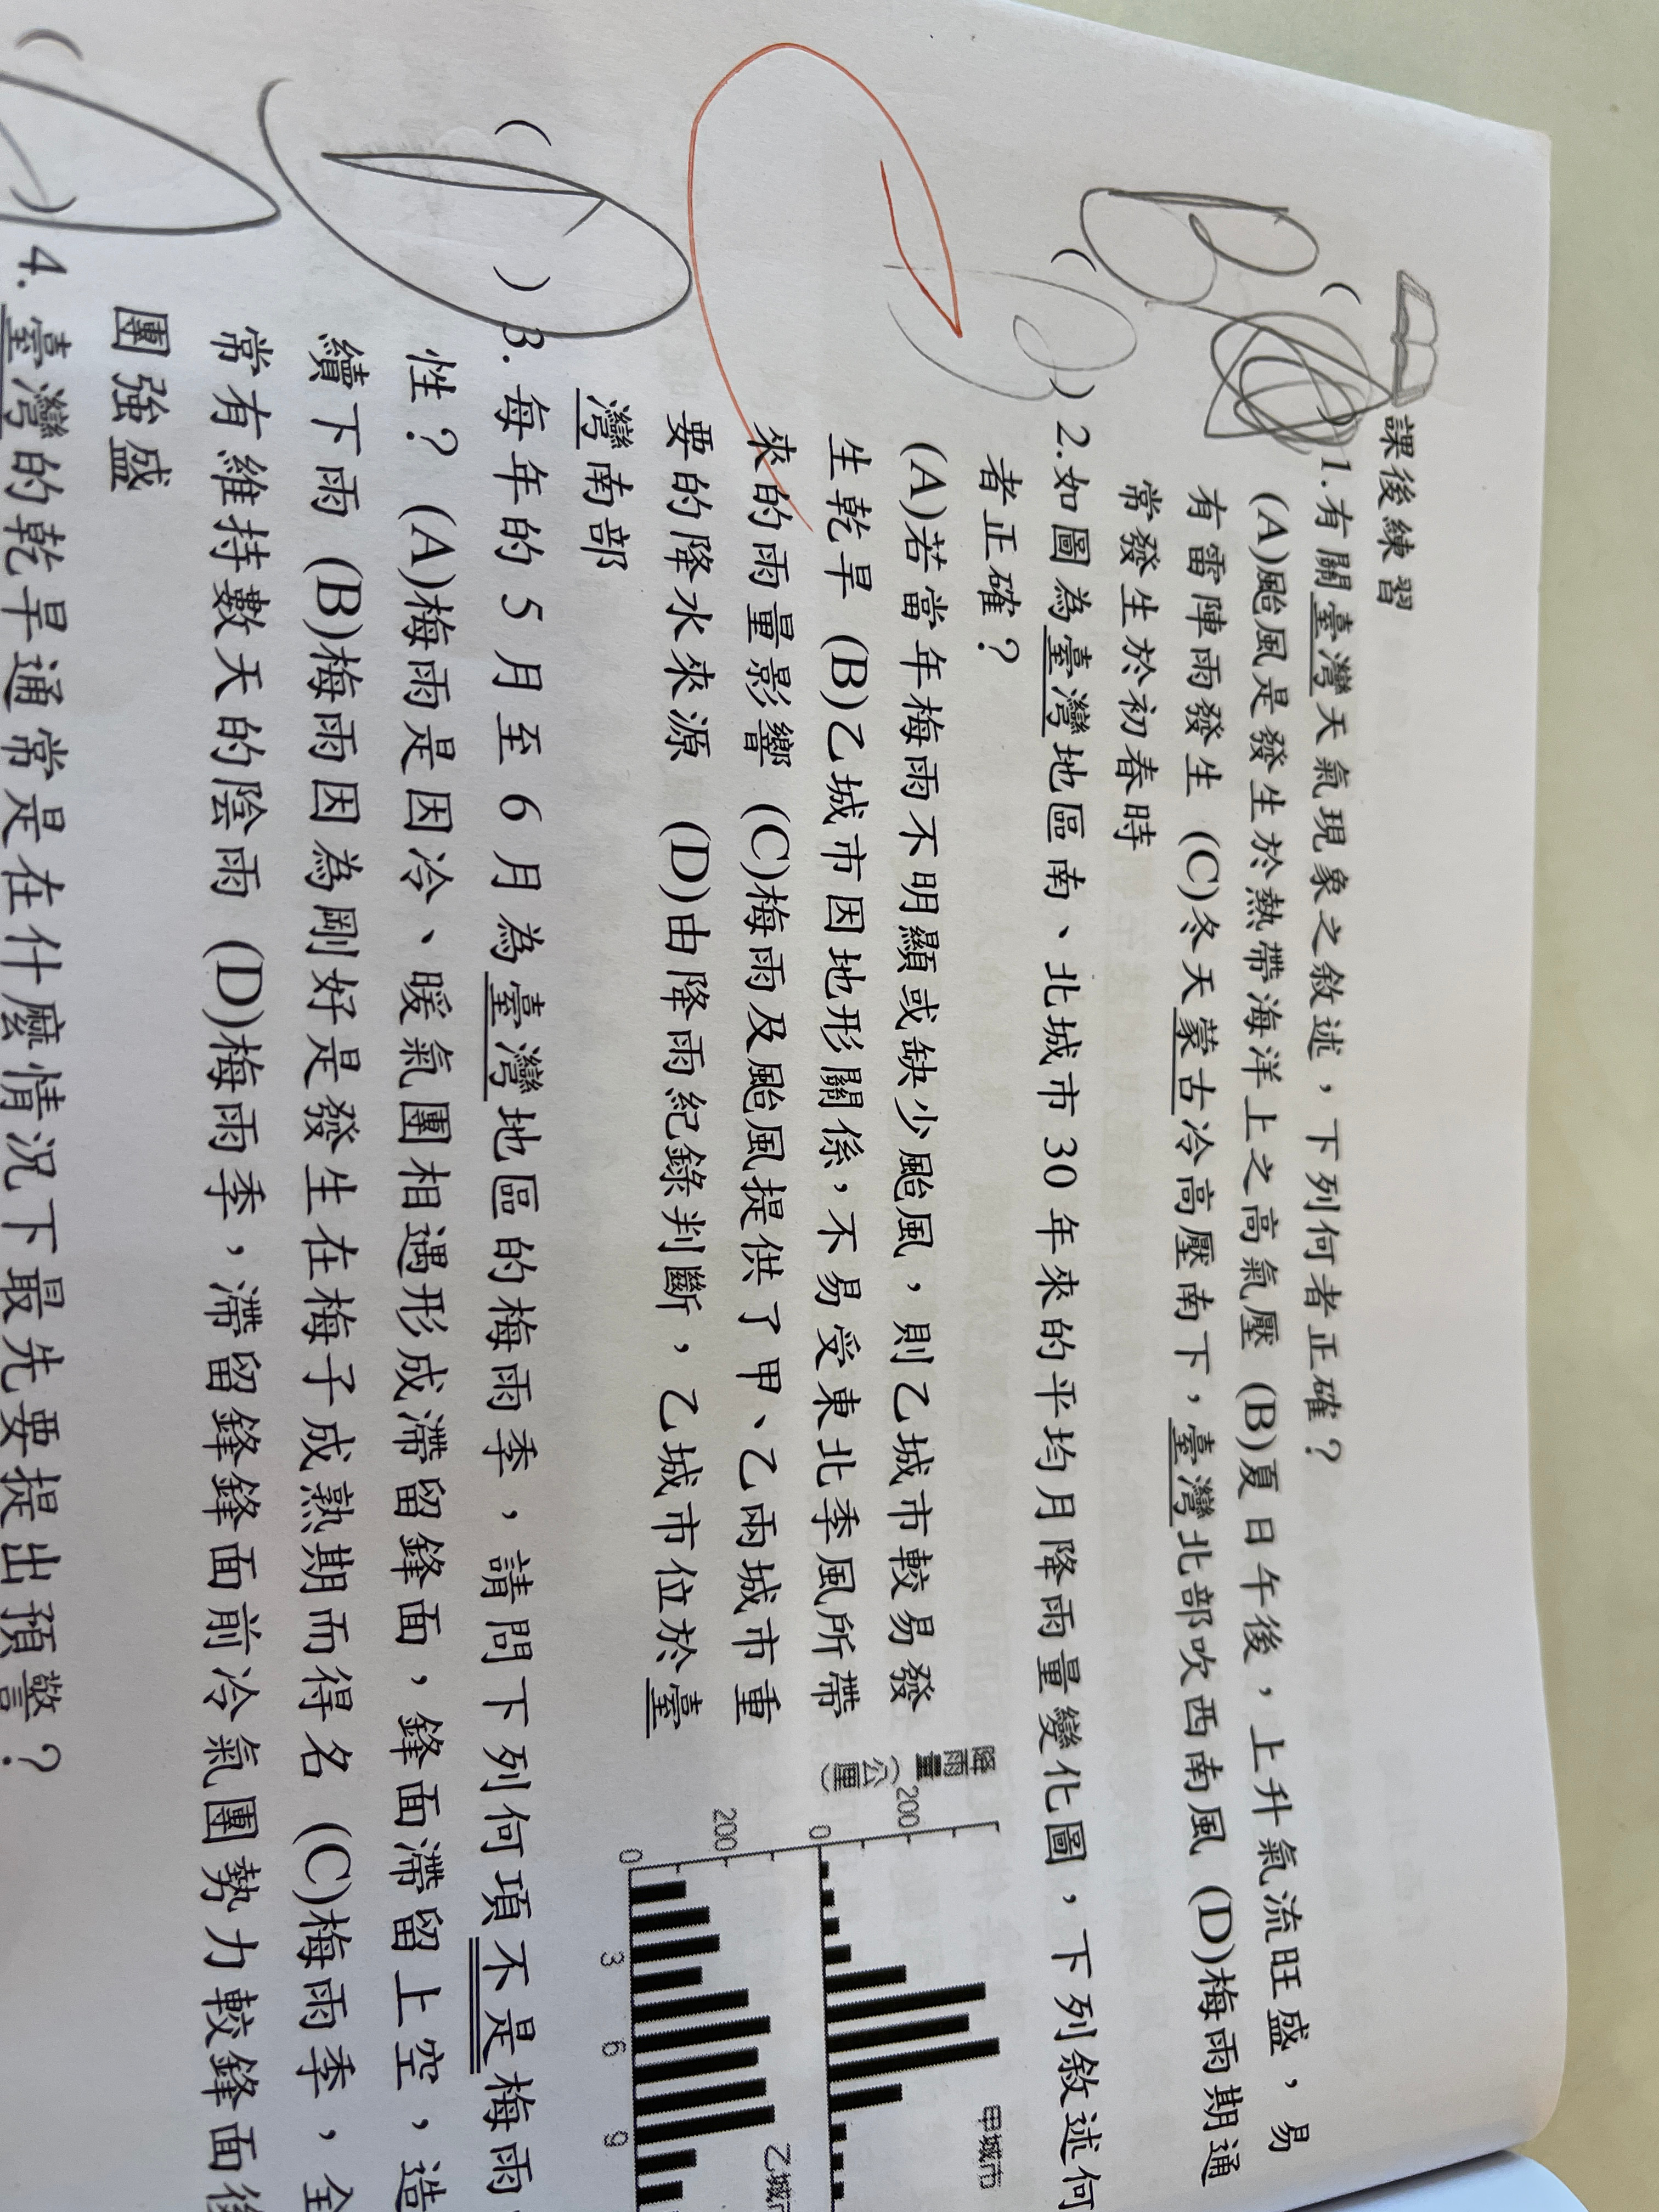 課後練習
B ( ) 1.有關臺灣天氣現象之敘述，下列何者正確？
(A)颱風是發生於熱帶海洋上之高氣壓 (B)夏日午後，上升氣流旺盛，易
有雷陣雨發生 (C)冬天蒙古冷高壓南下，臺灣北部吹西南風 (D)梅雨期通
常發生於初春時
( ) 2.如圖為臺灣地區南、北城市30年來的平均月降雨量變化圖，下列敘述何
者正確？
(A)若當年梅雨不明顯或缺少颱風，則乙城市較易發
生乾旱 (B)乙城市因地形關係，不易受東北季風所帶
來的雨量影響 (C)梅雨及颱風提供了甲、乙兩城市重
要的降水來源 (D)由降雨紀錄判斷，乙城市位於臺
灣南部
降雨量(公厘)
200
0
甲城市
200
0
3
6
9
乙城
( ) 3.每年的5月至6月為臺灣地區的梅雨季，請問下列何項不是梅雨
性？ (A)梅雨是因冷、暖氣團相遇形成滯留鋒面，鋒面滯留上空，造
續下雨 (B)梅雨因為剛好是發生在梅子成熟期而得名 (C)梅雨季，全
常有維持數天的陰雨 (D)梅雨季，滯留鋒鋒面前冷氣團勢力較鋒面後
團強盛
( ) 4.臺灣的乾旱通常是在什麼情況下最先要提出預警？